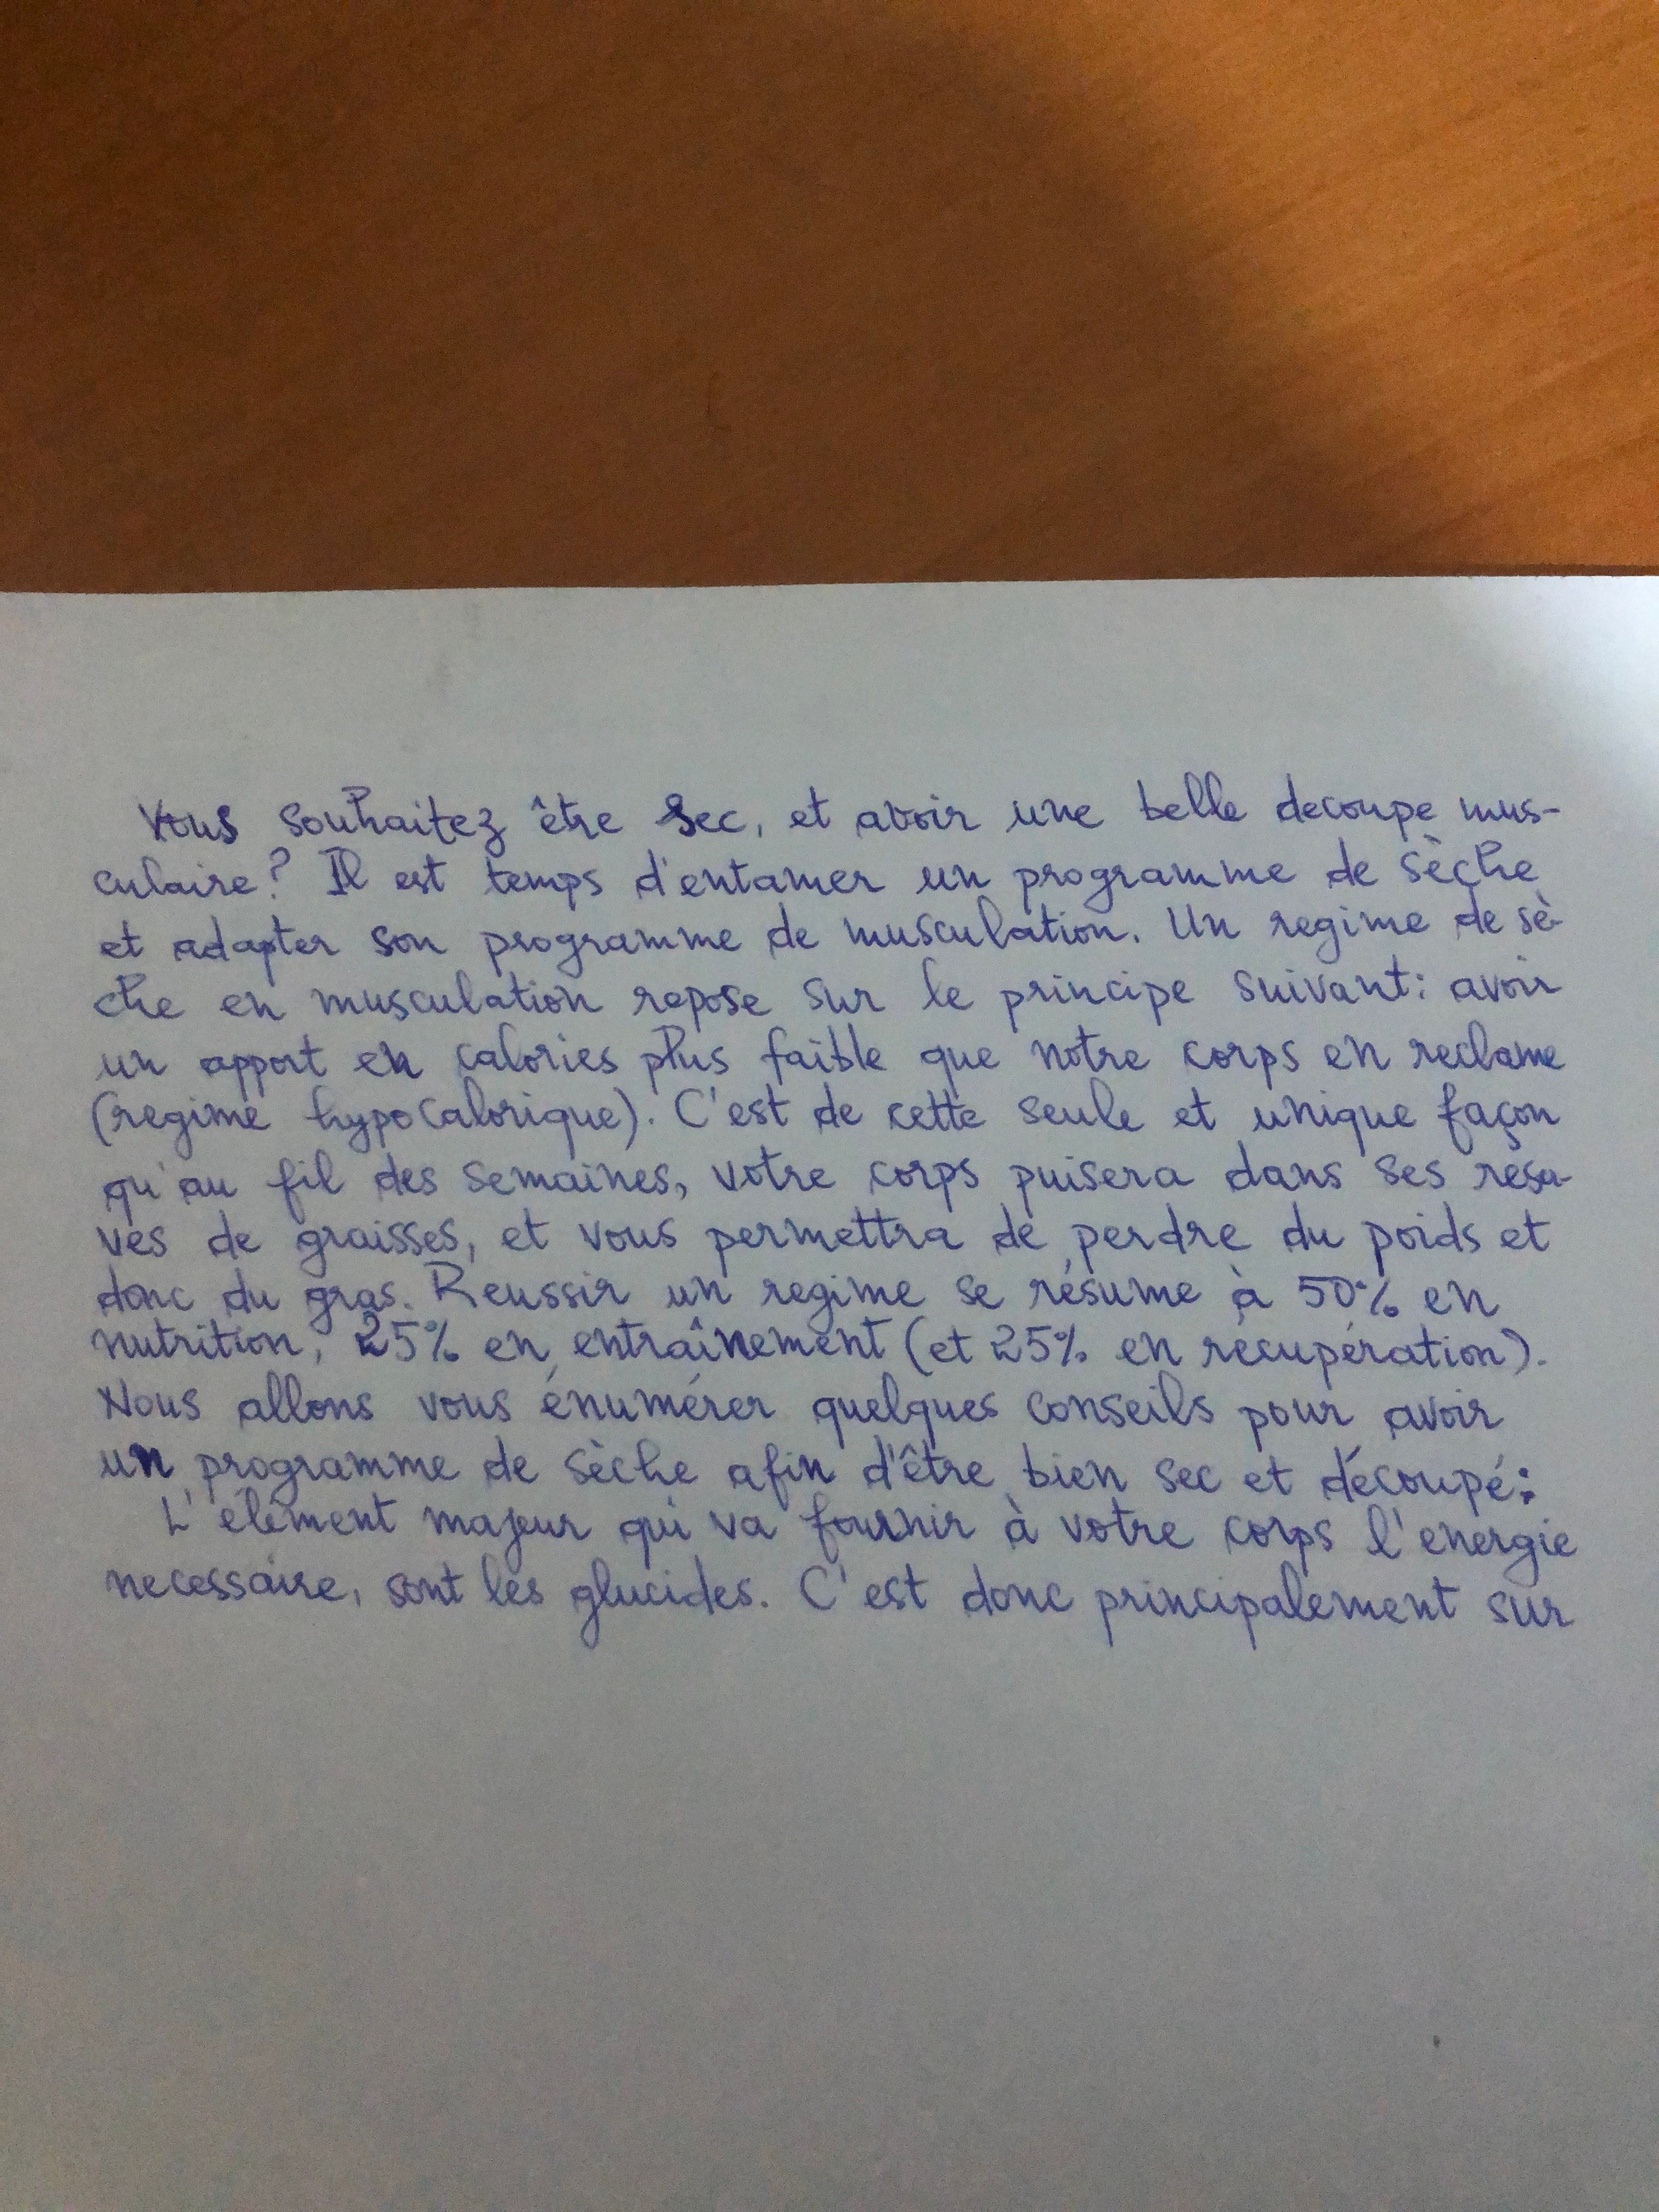 Vous souhaitez être sec, et avoir une belle decoupe mus-
culaire? Il est temps d'entamer un programme de sèche
et adapter son programme de musculation. Un regime de sè-
che en musculation repose sur le principe suivant: avoir
un apport en calories plus faible que notre corps en reclame
(regime hypocalorique). C'est de cette seule et unique façon
qu'au fil des semaines, votre corps puisera dans ses reser-
ves de graisses, et vous permettra de perdre du poids et
donc du gras. Reussir un regime se résume à 50% en
nutrition, 25% en entraînement (et 25% en récupération).
Nous allons vous énumérer quelques conseils pour avoir
un programme de sèche afin d'être bien sec et découpé:
L'élément majeur qui va fournir à votre corps l'energie
necessaire, sont les glucides. C'est donc principalement sur